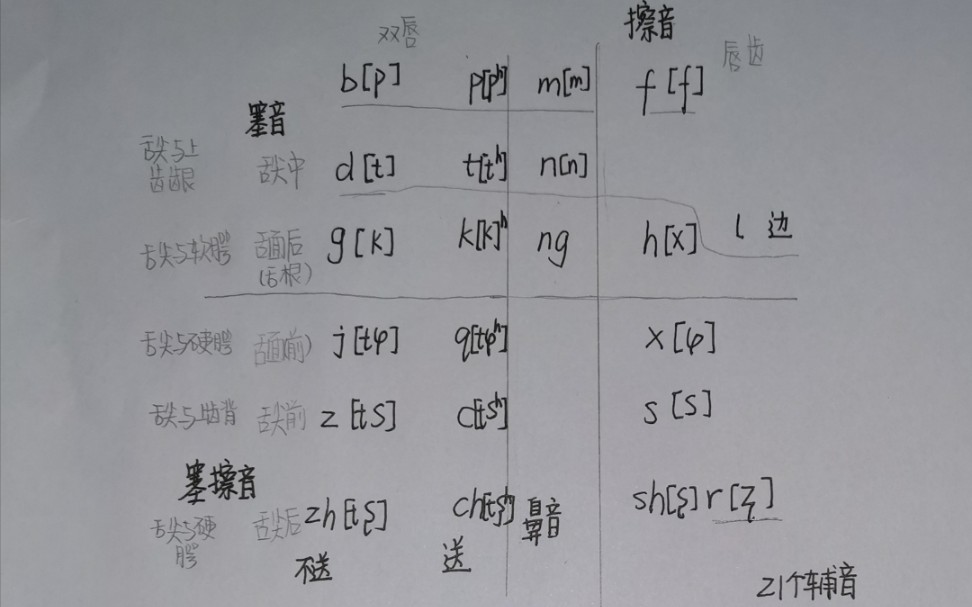 双唇 擦音 唇齿
b[p] p[pʰ] m[m] f[f]
塞音
舌尖与上齿龈 舌尖中 d[t] t[tʰ] n[n]
舌尖与软腭 舌面后(舌根) g[k] k[k]ʰ ng h[x] l 边
舌尖与硬腭 舌面(前) j[tφ] q[tφʰ] x[φ]
舌尖与齿背 舌尖前 z[ts] c[tsʰ] s[s]
塞擦音
舌尖与硬腭 舌尖后 zh[tʂ] ch[tʂʰ] 鼻音 sh[ʂ] r[ʐ]
不送 送
21个辅音